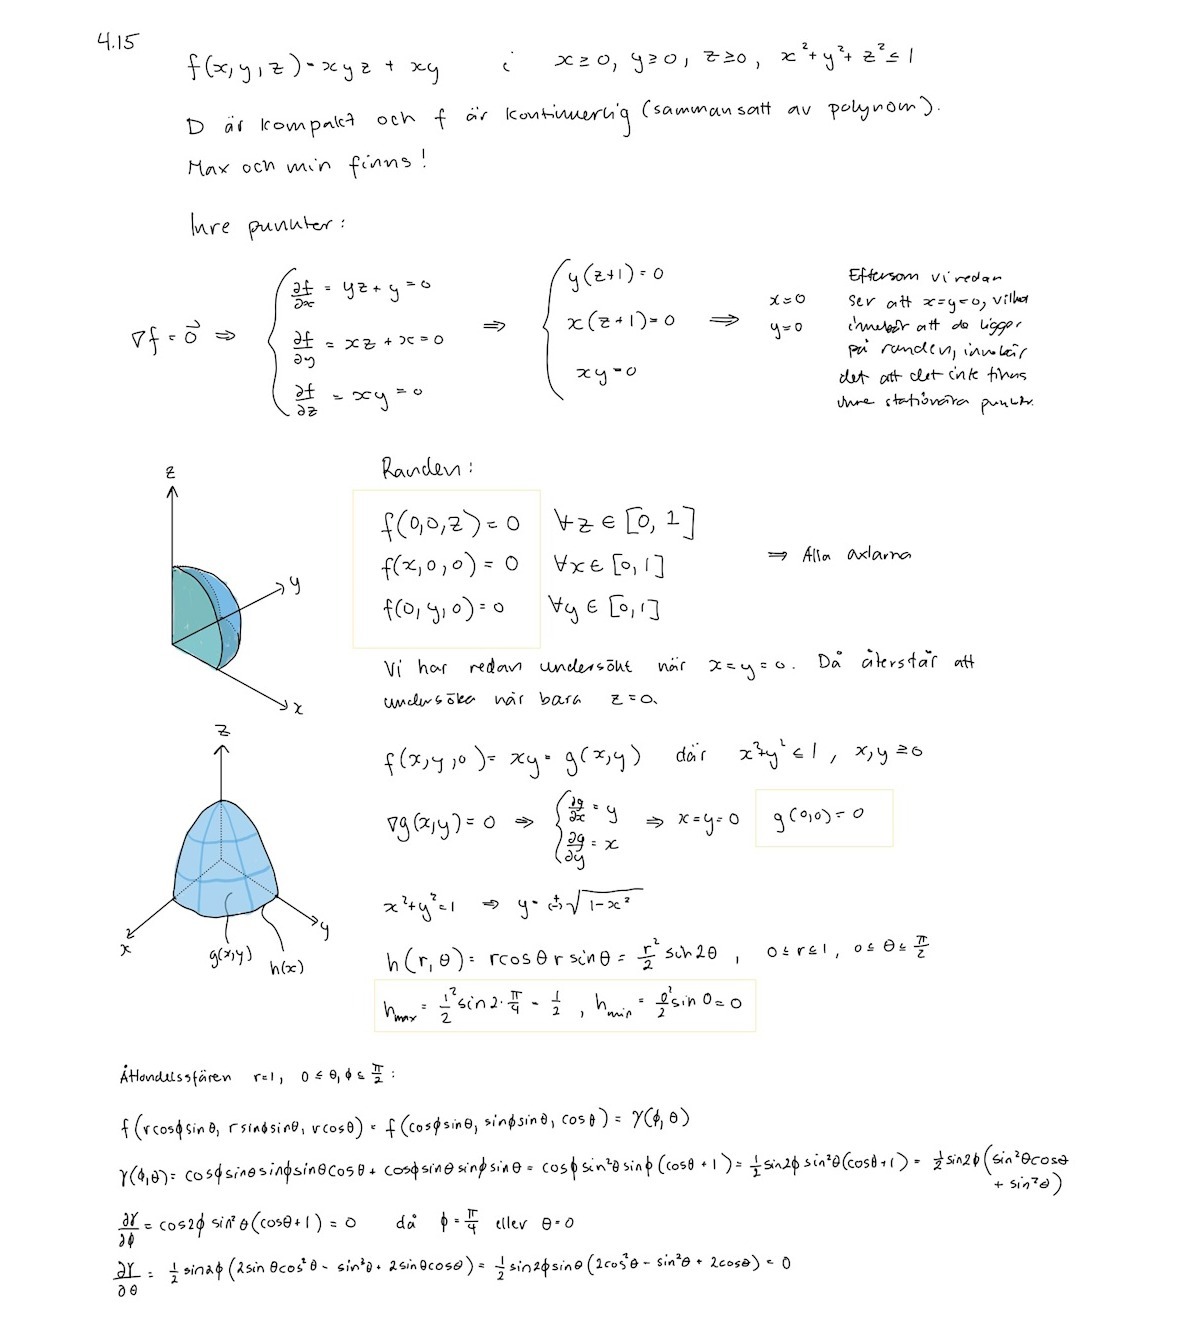 4.15
f(x,y,z) = xyz + xy i x≥0, y≥0, z≥0, x²+y²+z²≤1
D är kompakt och f är kontinuerlig (sammansatt av polynom).
Max och min finns!
Inre punkter:
∇f = 0⃗ ⇒ { ∂f/∂x = yz + y = 0 ⇒ { y(z+1) = 0 ⇒ x=0
∂f/∂y = xz + x = 0 x(z+1) = 0 y=0
∂f/∂z = xy = 0 xy = 0
Eftersom vi redan
ser att x=y=0, vilka
innebär att de ligger
på randen, innebär
det att det inte finns
inre stationära punkter.
Randen:
f(0,0,z) = 0 ∀z ∈ [0, 1]
f(x,0,0) = 0 ∀x ∈ [0,1] ⇒ Alla axlarna
f(0,y,0) = 0 ∀y ∈ [0,1]
z
y
x
Vi har redan undersökt när x=y=0. Då återstår att
undersöka när bara z=0.
z
x
y
g(x,y)
h(x)
f(x,y,0) = xy = g(x,y) där x²+y² ≤ 1, x,y ≥ 0
∇g(x,y) = 0 ⇒ { ∂g/∂x = y ⇒ x=y=0 g(0,0) = 0
∂g/∂y = x
x²+y²=1 ⇒ y = (±)√(1-x²)
h(r,θ) = rcosθ r sinθ = r²/2 sin2θ, 0≤r≤1, 0≤θ≤π/2
h_max = 1²/2 sin2·π/4 = 1/2, h_min = 0²/2 sin0 = 0
Åttondelssfären r=1, 0 ≤ θ,ϕ ≤ π/2 :
f(rcosϕsinθ, rsinϕsinθ, rcosθ) = f(cosϕsinθ, sinϕsinθ, cosθ) = γ(ϕ,θ)
γ(ϕ,θ) = cosϕsinθsinϕsinθcosθ + cosϕsinθsinϕsinθ = cosϕsin²θsinϕ(cosθ+1) = ½sin2ϕsin²θ(cosθ+1) = ½sin2ϕ(sin²θcosθ
+ sin²θ)
∂γ/∂ϕ = cos2ϕ sin²θ(cosθ+1) = 0 då ϕ=π/4 eller θ=0
∂γ/∂θ = ½ sin2ϕ(2sinθcos²θ - sin³θ + 2sinθcosθ) = ½sin2ϕsinθ(2cos²θ - sin²θ + 2cosθ) = 0